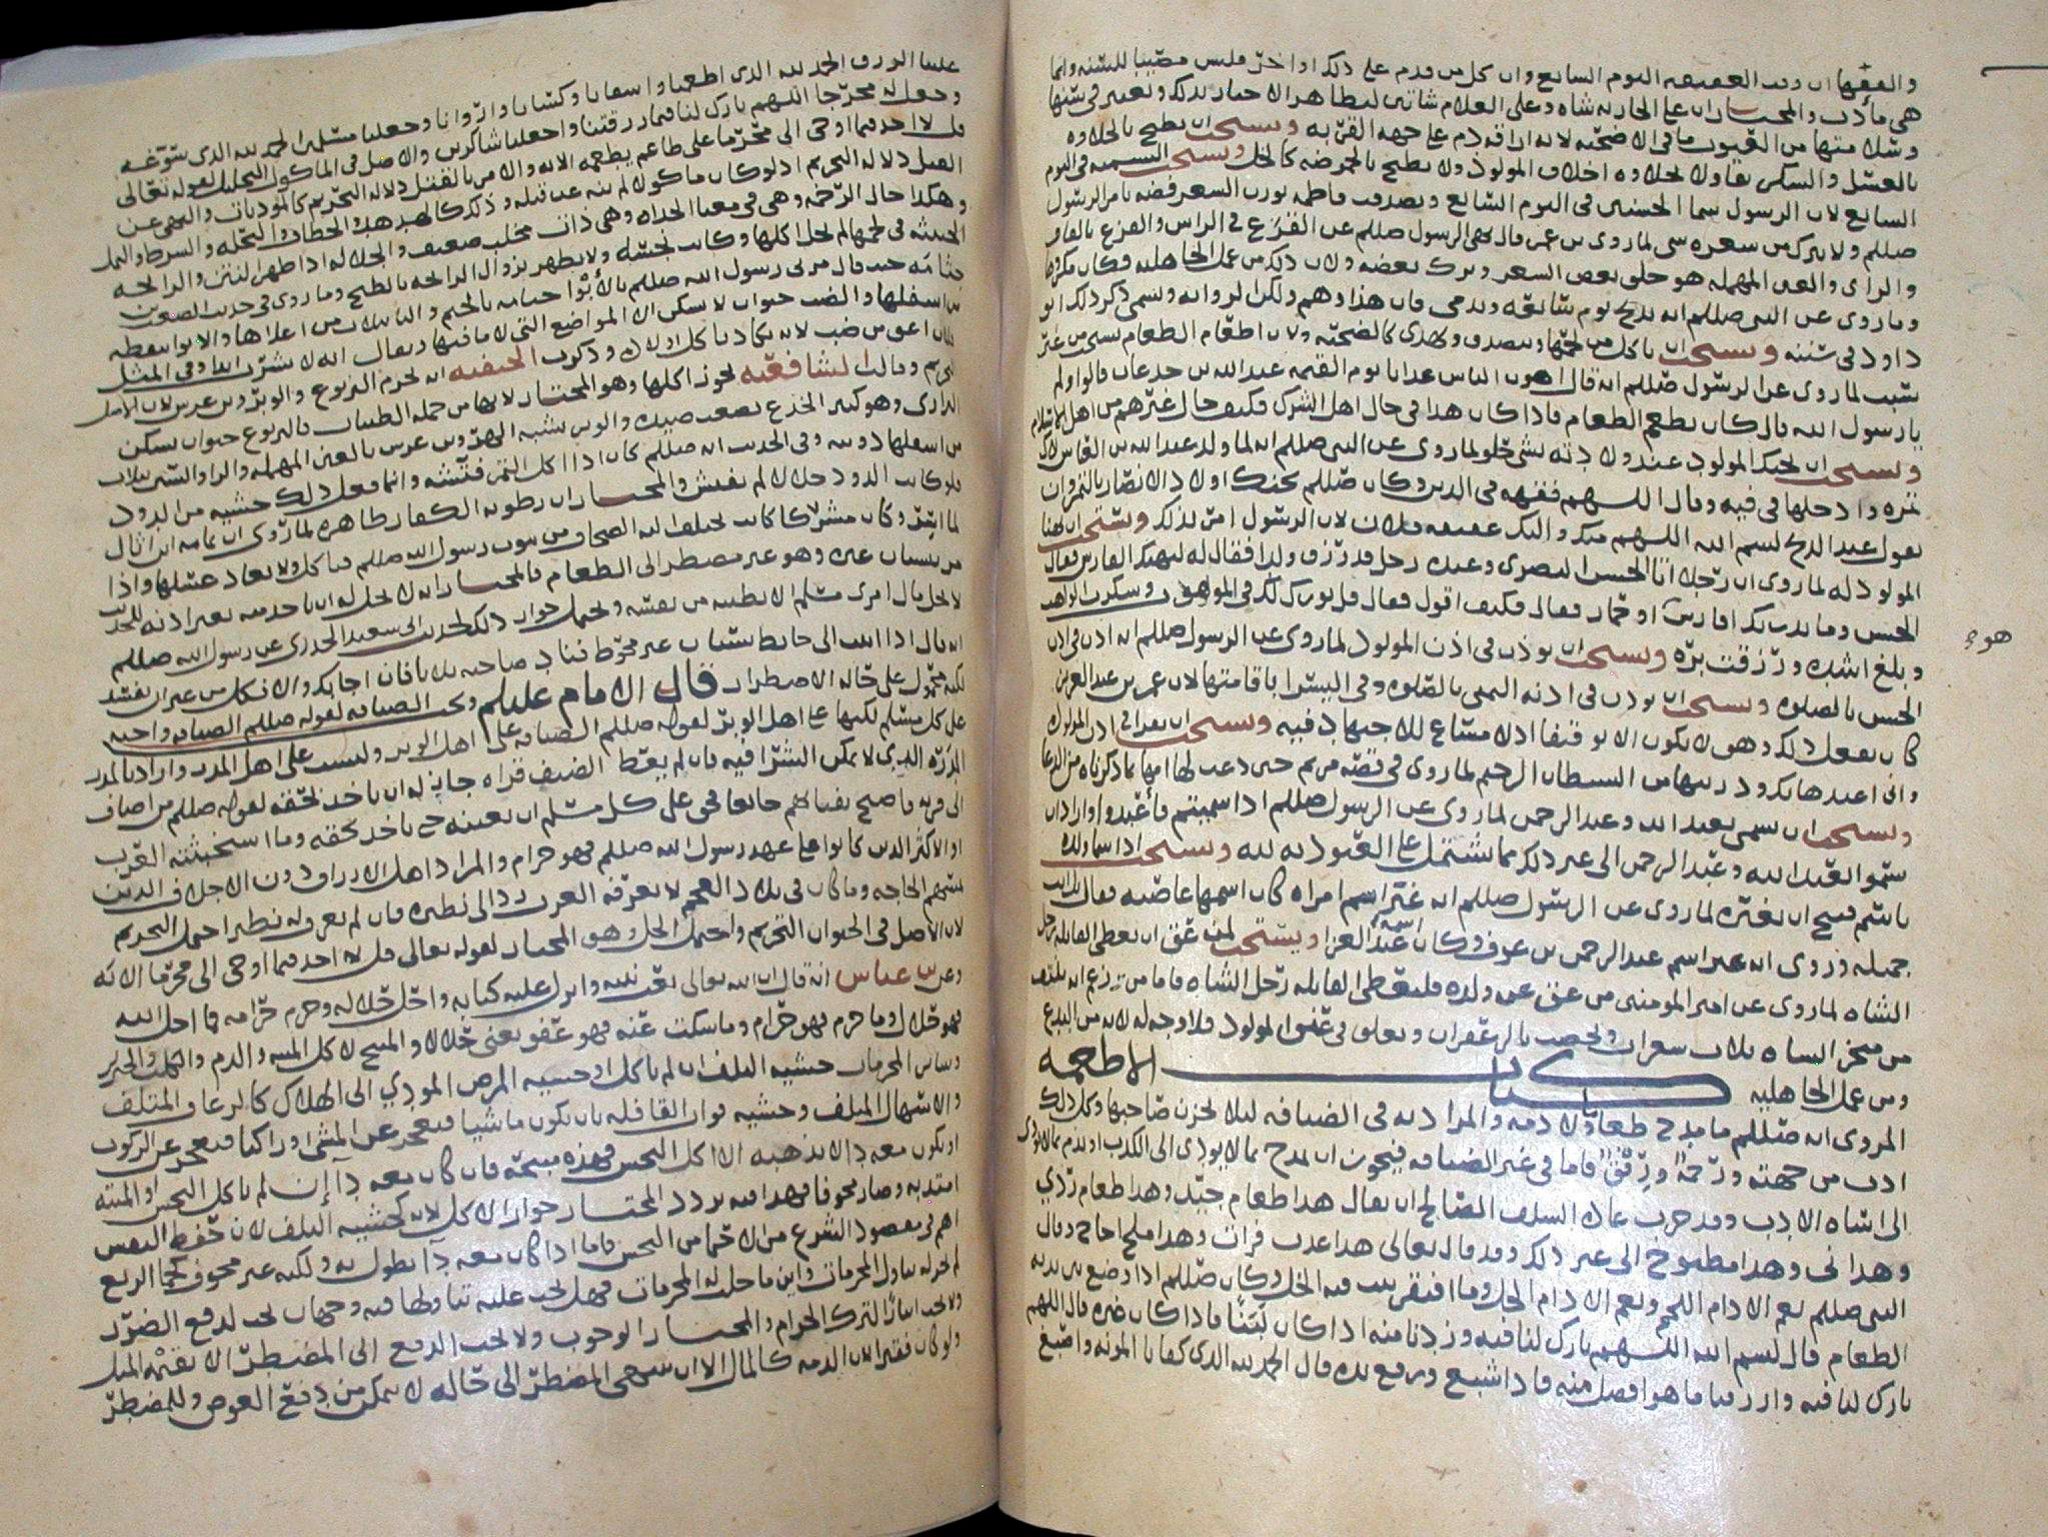 والفقها ان وقت العقيقه اليوم السابع وان كل من قدم على ذلك او اخر فليس مصيبا للسنه وانما
هي مأدبه والمختار ان على الجاريه شاه وعلى الغلام شاتين لتظاهر الاخبار بذلك ويعتبر في سنها
وسلامتها من العيوب ما في الاضحيه لانه اراقه دم على جهه القربه ويستحب ان يطبخ بالحلاوه
بالعسل والسكر تفاولا لحلاوه اخلاق المولود ولا يطبخ بالحموضه كالخل ويستحب التسميه في اليوم
السابع لان الرسول سما الحسنين في اليوم السابع وتصدقت فاطمه بوزن الشعر فضه بامر الرسول
صللم ولا يترك من سعره سى لما روى بن عمر قال نهى الرسول صللم عن القزع في الراس والقزع بالقاف
والزاى والعين المهمله هو حلق بعض الشعر وترك بعضه ولان ذلك من عمل الجاهليه فكان مكروها
وما روى عن النبى صللم انه يذبح يوم سابعه ويدمى فان هذا وهم ولكن الروايه ويسمى ذكر ذلك ابو
داود في سننه ويستحب ان ياكل من لحمها ويتصدق ويهدى كالضحيه ولان اطعام الطعام
لما روى عن الرسول صللم انه قال اهون الناس عذابا يوم القيمه عبد الله بن جدعان قالوا ولم
يارسول الله قال كان يطعم الطعام فاذا كان هذا في حال اهل الشرك فكيف حال غيرهم من اهل الاسلام
ويستحب ان يحنك المولود عند ولادته بشى حلو لما روى عن النبى صللم انه لما ولد عبد الله بن العباس لاك
تمره وادخلها في فيه وقال اللهم فقهه في الدين وكان صللم يحنك اولاد الانصار بالتمر وان
يقول عند الذبح بسم الله اللهم منك واليك عقيقه فلان لان الرسول امر بذلك ويستحب ان يهنا
المولود له لما روى ان رجلا اتا الحسن البصرى وعنده رجل قد رزق ولدا فقال له ليهنك الفارس فقال
الحسن وما يدريك افارس او حمار فقال فكيف اقول فقال قل بورك لك في الموهوب وسكرت الواهب
وبلغ اشده ورزقت بره ويستحب ان يوذن في اذن المولود لما روى عن الرسول صللم انه اذن في اذن
الحسن بالصلوه ويستحب ان يوذن في اذنه اليمنى بالصلوه وفي اليسرا باقامتها لان عمر بن عبد العزيز
كان يفعل ذلك وهو لا يكون الا توقيفا اذ لا مساغ للاجتهاد فيه ويستحب ان يقرا في اذن المولود
وانى اعيذها بك وذريتها من الشيطان الرجيم لما روى في قصه مريم حين دعت لها امها بما ذكرناه من الدعا
ويستحب ان يسمى بعبد الله وعبد الرحمن لما روى عن الرسول صللم اذا سميتم فأعبدوا واراد ان
سموا بعبد الله وعبد الرحمن الى غير ذلك مما يشتمل على العبوديه لله ويستحب اذا سما ولده
باسم قبيح ان يغيره لما روى عن الرسول صللم انه غير اسم امراه كان اسمها عاصيه فقال بل انت
جميله وروى انه غير اسم عبد الرحمن بن عوف وكان اسمه عبد العزا ويستحب لمن عق ان يعطى القابله رجل
الشاه لما روى عن امير المومنين من عق عن ولده فليعطى القابله رجل الشاه فاما من زعم انه
من منخر الشاه ثلاث شعرات ويخضب بالزعفران ويعلق في عنق المولود فلا وجه له لانه من البدع
ومن عمل الجاهليه
كتاب الاطعمه
المروى انه صللم ما مدح طعاما ولا ذمه والمراد به في الضيافه ليلا يحزن صاحبها وكل ذلك
ادب من جهته ورحمه ورفق فاما في غير الضيافه فيجوز ان يمدح بما لا يودى الى الكذب او يذم بما لا يودى
الى اساه الادب وقد جرت عاده السلف الصالح ان يقال هذا طعام جيد وهذا طعام ردي
وهذا نى وهذا مطبوخ الى غير ذلك وقد قال تعالى هذا عذب فرات وهذا ملح اجاج وقال
النبى صللم نعم الادام اللحم ونعم الادام الخل وما افتقر بيت فيه الخل وكان صللم اذا وضع بين يديه
الطعام قال بسم الله اللهم بارك لنا فيه وزدنا منه اذا كان لبنا فاذا كان غيره قال اللهم
بارك لنا فيه وارزقنا ما هو افضل منه فاذا شبع ورفع يده قال الحمد لله الذى كفانا المونه واصبغ
هوء
علينا الرزق الحمد لله الذى اطعمنا واسقانا وكسانا واروانا وجعلنا مسلمين الحمد لله الذى سوغه
وجعل له مخرجا اللهم بارك لنا فيما رزقتنا واجعلنا شاكرين والاصل في الماكول التحليل لقوله تعالى
قل لا اجد فيما اوحى الى محرما على طاعم يطعمه الايه والامر بالقتل دلاله التحريم كالموذيات والنهى عن
القتل دلاله التحريم اذ لو كان ماكولا لم ينه عن قتله وذلك كالهدهد والخطاف والنحله والسرط والنمل
وهكذا حال الرخمه وهى في معنا الحداه وهى ذات مخلب ضعيف والجلاله اذا ظهر النتن والرائحه
الخبيثه في لحمها لم يحل اكلها وكانت نجسه ولا يطهر بزوال الرائحه بالطبخ وما روى في حديث الصعب بن
جثامه حيث قال مر بى رسول الله صللم بالأبوا
من اسفلها والضب حيوان لا يسكن الا المواضع التى لا ما فيها ويقال انه لا يشرب ابدا وفي المثل
فلان اعق من ضب لانه يكاد ياكل اولاده وذكرت الحنفيه انه يحرم اليربوع والوبر وبن عرس لان الاصل
التحريم وقالت الشافعيه يجوز اكلها وهو المختار لانها من جمله الطيبات فاليربوع حيوان يسكن
البرارى وهو كبير الجذع يصعب صيده والوبر شبه الهر وبن عرس بالعين المهمله والرا والسين ثلاث
من اسفلها دونه وفي الحديث انه صللم كان اذا اكل التمر فتشه وانما فعل ذلك خشيه من الدود
فلو كانت الدود حلالا لم يفتش والمختار ان رطوبه الكفار طاهره لما روى ان ثمامه ابن اثال
لما اسر وكان مشركا كانت تختلف اليه الصحاف من بيوت رسول الله صللم فياكل ولا يعاد غسلها واذا
مر ببستان غيره وهو غير مضطر الى الطعام فالمختار انه لا يحل له ان ياخذ منه بغير اذنه للحديث
لا يحل مال امرى مسلم الا بطيبه من نفسه ويحمل جواز ذلك لحديث ابى سعيد الخدرى عن رسول الله صللم
انه قال اذا اتيت الى حايط بستان غير محوط فناد صاحبه ثلاثا فان اجابك والا فكل من غير ان تفسد
لكنه محمول على حاله الاضطرار قال الامام عليلم وتجب الضيافه لقوله صللم الضيافه واجبه
على كل مسلم لكنها على اهل الوبر لقوله صللم الضيافه على اهل الوبر وليست على اهل المدر واراد بالمدر
المدره الذى لا يمكن الشرا فيه فان لم يعط الضيف قراه جاز له ان ياخذ بحقه لقوله صللم من اضاف
الى قريه فاصبح بفنايهم جايعا فحق على كل مسلم ان يعينه حتى ياخذ بحقه وما استخبثته العرب
او الاكثر الذين كانوا على عهد رسول الله صللم فهو حرام والمراد اهل الارزاق دون الاجلاف الذين
تمسهم الحاجه وما كان في بلاد العجم لا تعرفه العرب رد الى نظيره فان لم يعرف له نظير احتمل التحريم
لان الاصل في الحيوان التحريم واحتمل الحل وهو المختار لقوله تعالى قل لا اجد فيما اوحى الى محرما الايه
وعن بن عباس انه قال ان الله تعالى بعث نبيه وانزل عليه كتابه واحل حلاله وحرم حرامه فما احل الله
فهو حلال وما حرم فهو حرام وما سكت عنه فهو عفو يعنى حلالا والمبيح لاكل الميته والدم ولحم الخنزير
وساير المحرمات خشيه التلف ان لم ياكل او خشيه المرض المودي الى الهلاك كالرعاف المتلف
والاسهال المتلف وخشيه فوات القافله بان يكون ماشيا فيعجز عن المشى او راكبا فيعجز عن الركوب
او يكون معه دا لا يذهبه الا اكل النجس فهذه مبيحه فان كان معه دا إن لم ياكل النجس او الميته
امتد به وصار مخوفا فهذا فيه تردد المختار جواز الاكل لانه كخشيه التلف لان حفظ النفس
اهم في مقصود الشرع من الاحتما من النجس فاما اذا كان معه دا يطول به ولكنه غير مخوف كحما الربع
لم يجز له تناول المحرمات واين ما حلت له المحرمات فهل يجب عليه تناولها فيه وجهان يجب لدفع الضرر
ولا يجب ايثارا لترك الحرام والمختار الوجوب ولا يجب الدفع الى المضطر الا بقيمه المثل
ولو كان فقيرا لان الذمه كالمال الا ان ينتهى المضطر الى حاله لا يمكن من دفع العوض وللمضطر